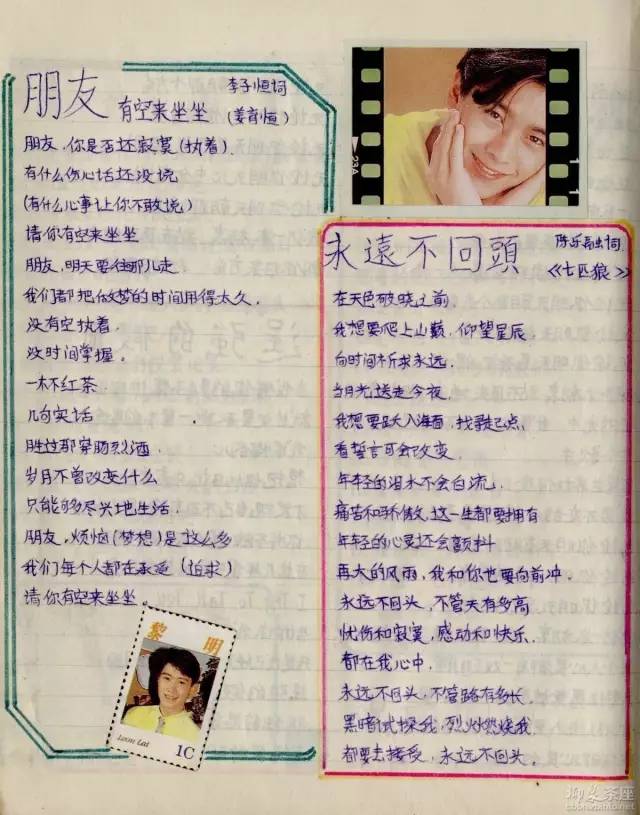 朋友
李子恒词
有空来坐坐 (姜育恒)
朋友,你是否还寂寞(执着).
有什么伤心话还没说
(有什么心事让你不敢说)
请你有空来坐坐
朋友,明天要往那儿走
我们都把做梦的时间用得太久.
没有空执着.
没时间掌握.
一杯红茶
几句实话
胜过那穿肠烈酒.
岁月不曾改变什么
只能够尽兴地生活.
朋友,烦恼(梦想)是这么多
我们每个人都在承受(追求)
请你有空来坐坐.
黎 明
Leon Lai
1C
23A
永遠不回頭
陈乐融词
《七匹狼》
在天色破晓之前
我想要爬上山巅,仰望星辰
向时间祈求永远.
当月光送走今夜.
我想要跃入海面,找寻起点.
看誓言可会改变.
年轻的泪水不会白流.
痛苦和骄傲,这一生都要拥有
年轻的心灵还会颤抖
再大的风雨,我和你也要向前冲.
永远不回头,不管天有多高
忧伤和寂寞,感动和快乐.
都在我心中.
永远不回头,不管路有多长.
黑暗试探我,烈火燃烧我
都要去接受,永远不回头.
茶座